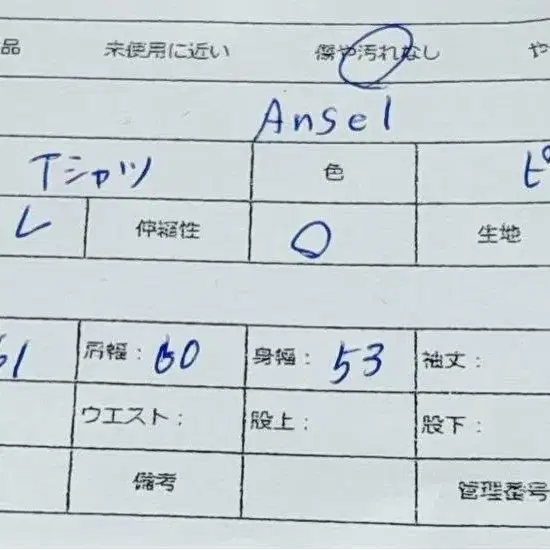 品 未使用に近い 傷や汚れなし や
Ansel
Tシャツ 色 ピ
レ 伸縮性 ○ 生地
61 肩幅： 60 身幅： 53 袖丈：
ウエスト： 股上： 股下：
備考 管理番号